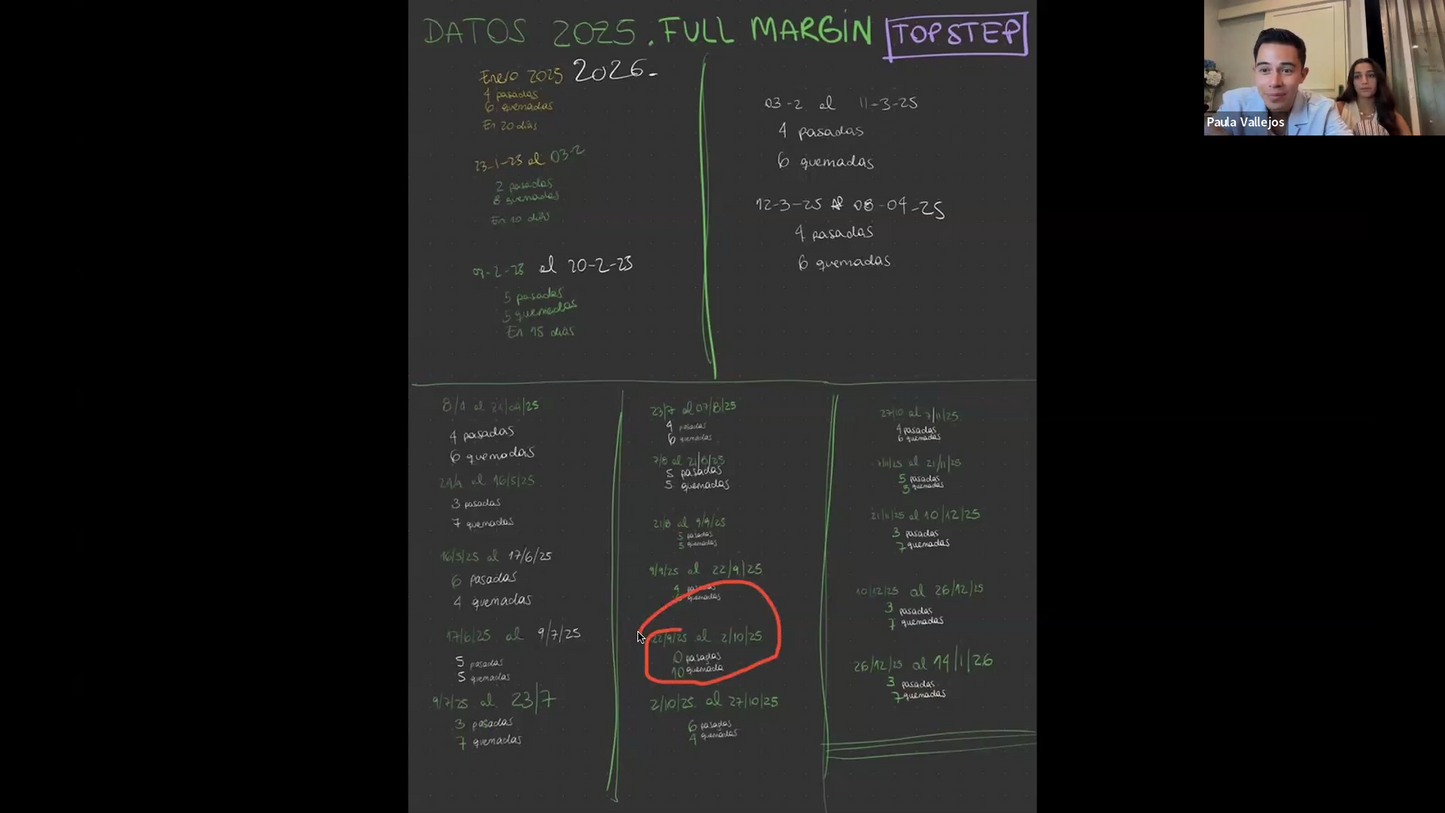 DATOS 2025. FULL MARGIN TOPSTEP
Enero 2025 2026-
4 pasadas
6 quemadas
En 20 dias
23-1-25 al 03-2
2 pasadas
8 quemadas
En 10 dias
al 20-2-25
5 pasadas
5 quemadas
En 15 dias
03-2 al 11-3-25
4 pasadas
6 quemadas
12-3-25 al 08-04-25
4 pasadas
6 quemadas
4 pasadas
6 quemadas
al 16/5/25
3 pasadas
7 quemadas
16/5/25 al 17/6/25
6 pasadas
4 quemadas
17/6/25 al 9/7/25
5 pasadas
5 quemadas
9/7/25 al 23/7
3 pasadas
7 quemadas
23/7 al 07/8/25
4 pasadas
6 quemadas
7/8 al 21/8/25
5 pasadas
5 quemadas
21/8 al 9/9/25
5 pasadas
5 quemadas
9/9/25 al 22/9/25
4 pasadas
quemadas
22/9/25 al 2/10/25
0 pasadas
10 quemada
2/10/25 al 27/10/25
6 pasadas
4 quemadas
27/10 al 7/11/25
4 pasadas
6 quemadas
7/11/25 al 21/11/25
5 pasadas
5 quemadas
21/11/25 al 10/12/25
3 pasadas
7 quemadas
10/12/25 al 26/12/25
3 pasadas
7 quemadas
26/12/25 al 14/1/26
3 pasadas
7 quemadas
Paula Vallejos